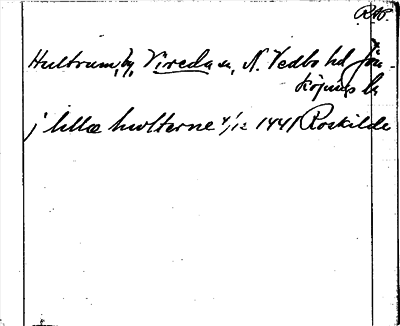 RAP.
Hultrum, by, Vireda sn, N. Vedbo hd, Jön-
köpings län
j lillæ hwlterne 4/12 1441 Roskilde